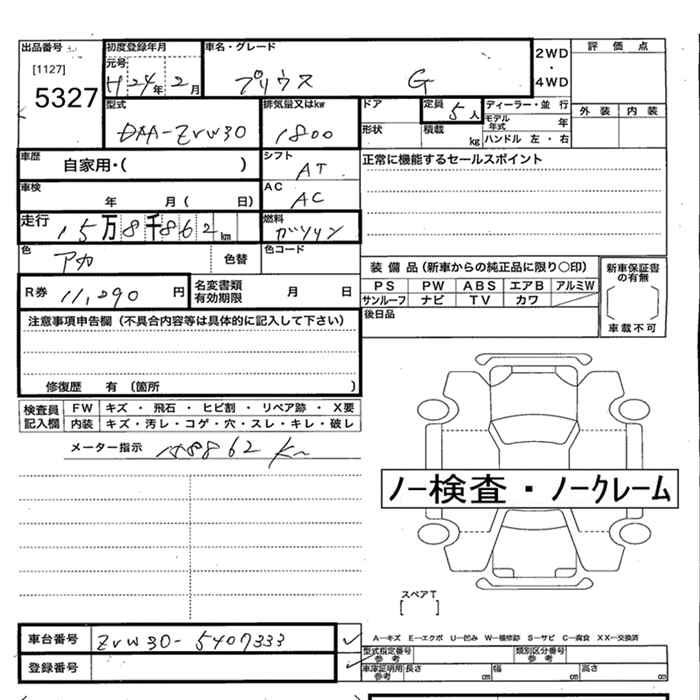 出品番号 初度登録年月 車名・グレード 2WD 評価点
[1127] 元号 ・
5327 H 24年 2月 プリウス G 4WD
型式 排気量又はkw ドア 定員 5人 ディーラー・並行 外装 内装
DAA-ZVW30 1800 形状 積載 kg モデル年式 年
ハンドル 左・右
車歴 自家用・( ) シフト AT 正常に機能するセールスポイント
車検 年 月( 日) AC AC
走行 15万8千862km 燃料 ガソリン
色 アカ 色替 色コード
装備品(新車からの純正品に限り○印) 新車保証書の有無
R券 11,290円 名変書類有効期限 月 日 PS PW ABS エアB アルミW
サンルーフ ナビ TV カワ
[ ]
車載不可
注意事項申告欄(不具合内容等は具体的に記入して下さい) 後日品
修復歴 有 (箇所 )
検査員記入欄 FW キズ・飛石・ヒビ割・リペア跡・X要
内装 キズ・汚レ・コゲ・穴・スレ・キレ・破レ
メーター指示 158862 km
ノー検査・ノークレーム
スペアT
[ ]
車台番号 ZVW30-5407333
A―キズ E―エクボ U―凹み W―補修跡 S―サビ C―腐食 XX―交換済
登録番号 型式指定番号参考 類別区分番号参考
車庫証明用参考 長さ cm 幅 cm 高さ cm